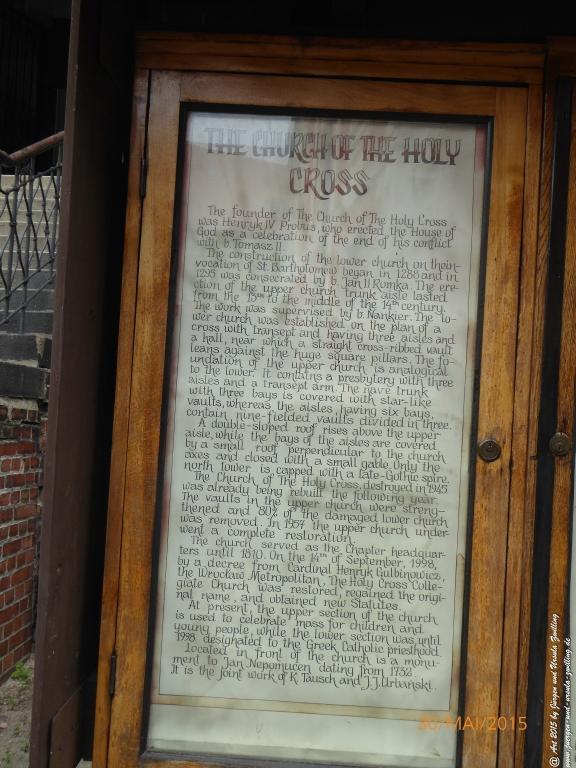 THE CHURCH OF THE HOLY
CROSS
The founder of The Church of The Holy Cross
was Henryk IV Probus, who erected the House of
God as a celebration of the end of his conflict
with b. Tomasz II.
The construction of the lower church on thein-
vocation of St. Bartholomew began in 1288 and in
1295 was consecrated by b. Jan III Romka. The ere-
ction of the upper church trunk aisle lasted
from the 13th to the middle of the 14th century.
The work was supervised by b. Nankier. The lo-
wer church was established on the plan of a
cross with transept and having three aisles and
a hall, near which a straight cross-ribbed vault
leans against the huge square pillars. The fo-
undation of the upper church is analogical
to the lower. It contains a presbytery with three
aisles and a transept arm. The nave trunk
with three bays is covered with star-like
vaults, whereas the aisles, having six bays,
contain nine-fielded vaults divided in three.
A double-sloped roof rises above the upper
aisle, while the bays of the aisles are covered
by a small roof perpendicular to the church
axes and closed with a small gable. Only the
north tower is capped with a late-Gothic spire.
The Church of The Holy Cross, destroyed in 1945
was already being rebuilt the following year.
The vaults in the upper church were streng-
thened and 80% of the damaged lower church
was removed. In 1957 the upper church under-
went a complete restoration.
The church served as the Chapter headquar-
ters until 1810. On the 14th of September, 1998,
by a decree from Cardinal Henryk Gulbinowicz,
the Wrocław Metropolitan, The Holy Cross Colle-
giate Church was restored, regained the origi-
nal name, and obtained new Statutes.
At present, the upper section of the church
is used to celebrate mass for children and
young people, while the lower section was, until
1998 designated to the Greek Catholic priesthood.
Located in front of the church is a monu-
ment to Jan Nepomucen dating from 1732.
It is the joint work of K. Tausch and J.J. Urbański.
30/MAI/2015
@ Art 2015 by Jürgen und Ursula Zwilling
www.juergen-und-ursula-zwilling.de